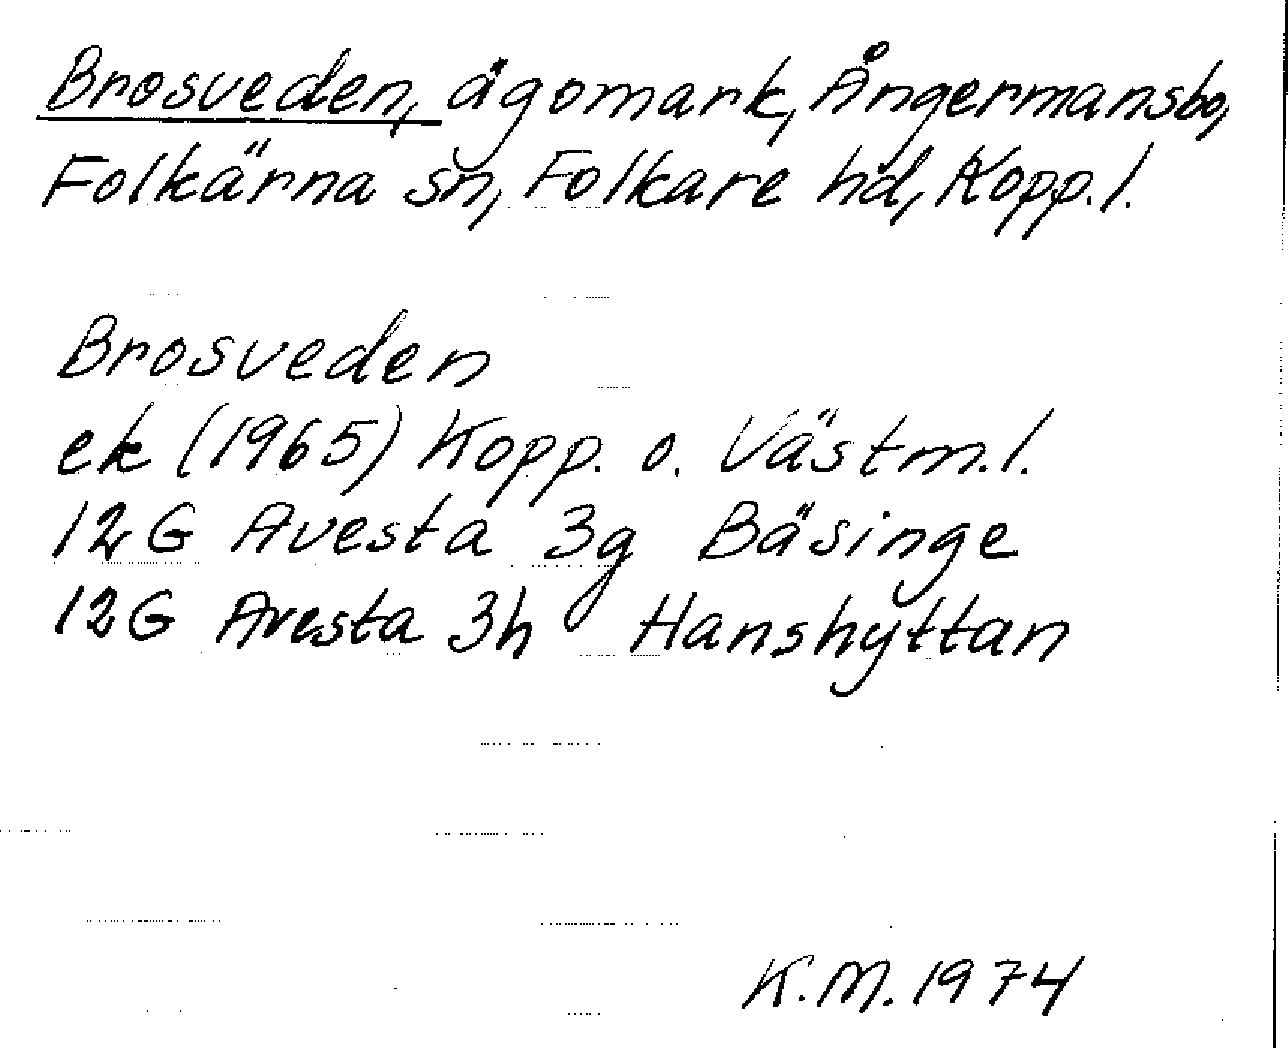 Brosveden, ägomark, Ångermansbo,
Folkärna sn, Folkare hd, Kopp. l.
Brosveden
ek (1965) Kopp. o. Västm. l.
12G Avesta 3g Bäsinge
12G Avesta 3h Hanshyttan
K.M. 1974